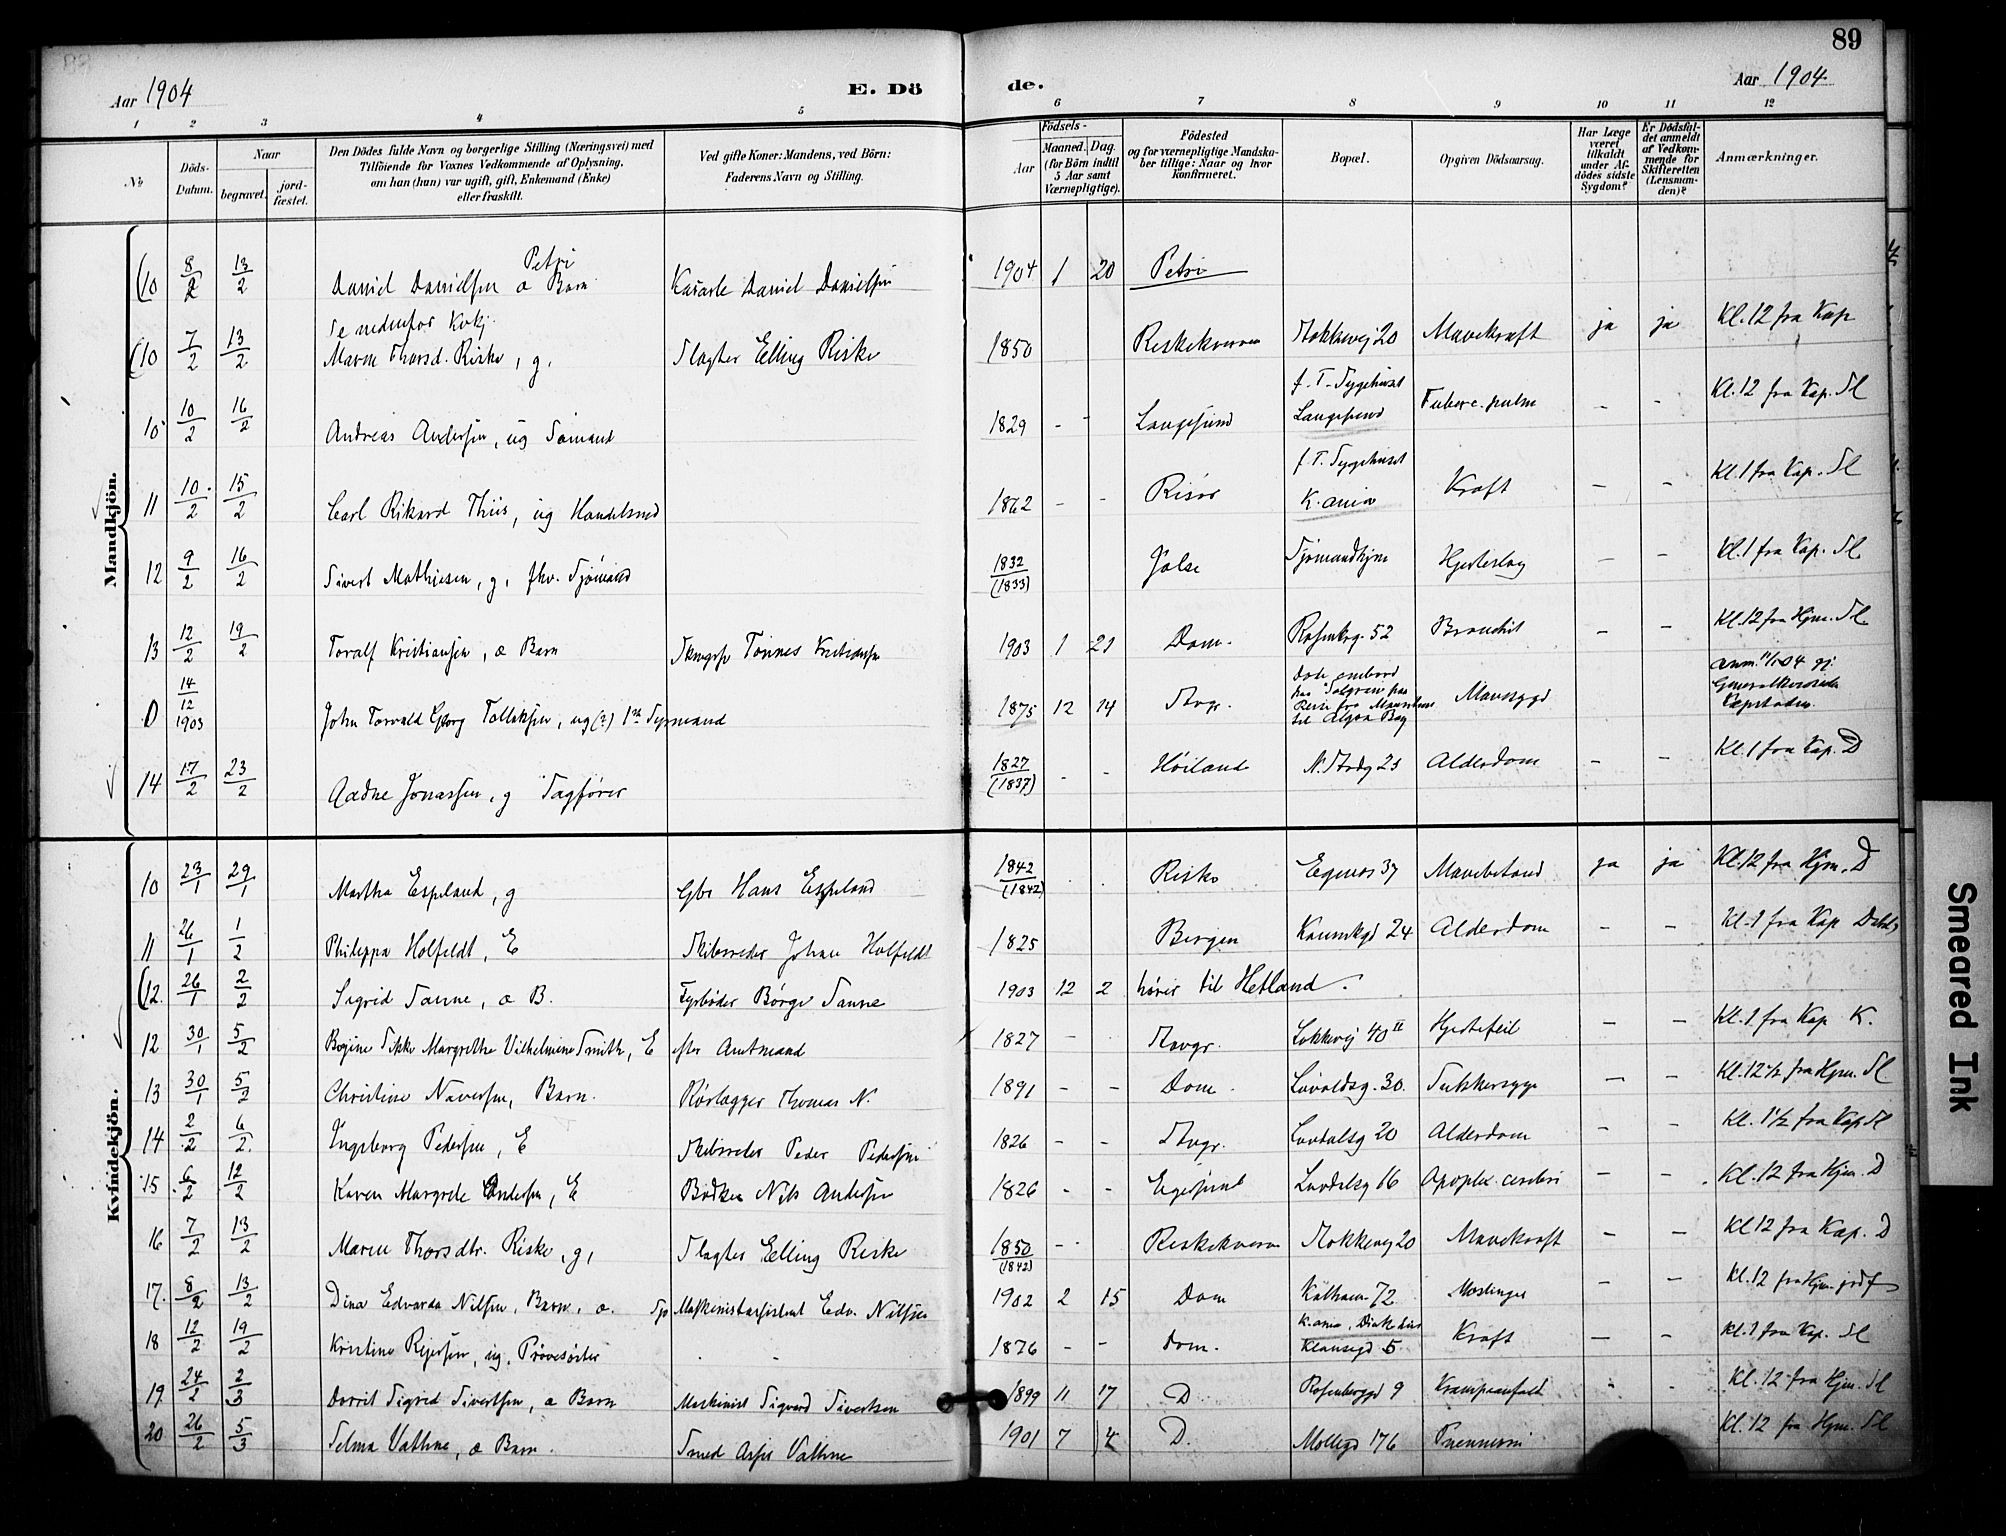 89
Aar 1904 E. Dö de. Aar 1904
1 2 3 4 5 6 7 8 9 10 11 12
No Döds-Datum. Naar begravet. jord-fæstet. Den Dödes fulde Navn og borgerlige Stilling (Næringsvei) med Tilföiende for Voxnes Vedkommende af Oplysning, om han (hun) var ugift, gift, Enkemand (Enke) eller fraskilt. Ved gifte Koner: Mandens, ved Börn: Faderens Navn og Stilling. Födsels- Aar Maaned. Dag. (for Börn indtil 5 Aar samt Værnepligtige). Födested og for værnepligtige Mandskaber tillige: Naar og hvor konfirmeret. Bopæl. Opgiven Dödsaarsag. Har Læge været tilkaldt under Afdödes sidste Sygdom? Er Dödsfaldet anmeldt af Vedkommende for Skifteretten (Lensmanden)? Anmærkninger.
Mandkjön.
(10 8/2 13/2 Daniel Danielsen æ Barn Petri Daniel Danielsen 1904 1 20 Petri
Se nedenfor Kvkj.
(10 7/2 13/2 Maren Thorsd. Riske, g. Slagter Elling Riske 1850 Riskekværn Stokkevej 20 Mavekræft ja ja Kl. 12 fra Kap
10 10/2 16/2 Andreas Andersen, ug Sømand 1829 - - Langesund f. T. Sygehuset Langesund Tuberc. pulm - - Kl. 12 fra Kap. Sl
11 10/2 15/2 Carl Rikard Thiis, ug Handelsmd 1862 - - Risør f. T. Sygehuset K.ania Kræft - - Kl. 1 fra Kap. Sl
12 9/2 16/2 Sivert Mathiesen, g, fhv. Sjømand 1832 (1833) Jølse Sjømandshjm Hjerteslag - - Kl. 1 fra Kap. Sl
13 12/2 19/2 Toralf Kristiansen, æ Barn Tønnes Kristiansen 1903 1 21 Dom. Rosenbrg. 52 - - Kl. 12 fra Hjm. Sl
0 14/12 1903 John Torvald Georg Tollaksen, ug (?) 1st Styrmand 1875 12 14 Stvgr. Døde ombord til Algoa Bay Mavesygd anm. 11/1 04 gj. Generalkonsulen Kapstaden.
14 17/2 23/2 Aadne Jonassen, g Sagfører 1827 (1837) - - Høiland N. Strdg 23 Alderdom - - Kl. 1 fra Kap. D
Kvindekjön.
10 23/1 29/1 Martha Espeland, g Gbr Hans Espeland 1842 (1842) Riske Egenes 37 Mavebetænd ja ja Kl. 12 fra Hjm. D
11 26/1 1/2 Philippa Holfeldt, E Skibsreder Johan Holfeldt 1825 Bergen Kannikgd 24 Alderdom - - Kl. 1 fra Kap
(12. 26/1 2/2 Sigrid Sanne, æ B. Fyrbøder Børge Sanne 1903 12 2 hører til Hetland.
12 30/1 5/2 Margrethe Vilhelmine Smith, E efter Amtmand 1827 - Stavgr. Løkkevej 40 II Hjertefeil - - Kl. 1 fra Kap K.
13 30/1 5/2 Christine Naversen, Barn. Rørlægger Thomas N. 1891 - - Dom. Løvdalsg. 30. Sukkersyge - - Kl. 12½ fra Hjm. Sl
14 2/2 6/2 Ingeborg Pedersen, E Skibsreder Peder Pedersen 1826 - - Stvgr. Løvdalsg 20 Alderdom - - Kl. 1½ fra Kap Sl
15 6/2 12/2 Karen Margrete Andersen, E Bødker Nils Andersen 1826 - - Egersund Løvdalsg 66 Apoplex. cerebri - - Kl. 12 fra Hjm. D
16 7/2 13/2 Maren Thorsdtr. Riske, g, Slagter Elling Riske 1850 (1842) - - Riskekværn Stokkevej 20 Mavekræft - - Kl 12 fra Kap. D
17. 8/2 13/2 Dina Edvarda Nilsen, Barn, æ. Maskinistassistent Edv. Nilsen 1902 2 15 Dom Kalhamr 72 Meslinger - - Kl. 12 fra Hjm.
18 12/2 19/2 Kristine Rejersen, ug. Prøvesøster - - 1876 - - Dom. K.ania, Diak.hus Klausegd 5 Kræft - - Kl. 1 fra Kap. Sl
19. 24/2 2/3 Dorrit Sigrid Sivertsen, æ Barn Maskinist Sigvard Sivertsen 1899 11 17 D. Rosenberggd 9 Krampeanfald - - Kl. 12 fra Hjm. Sl
20 26/2 5/3 Selma Vathne, æ Barn. Smed Vathne 1901 7 4 D. Møllegd 176 - Kl. 12 fra Hjm. Sl
Smeared Ink